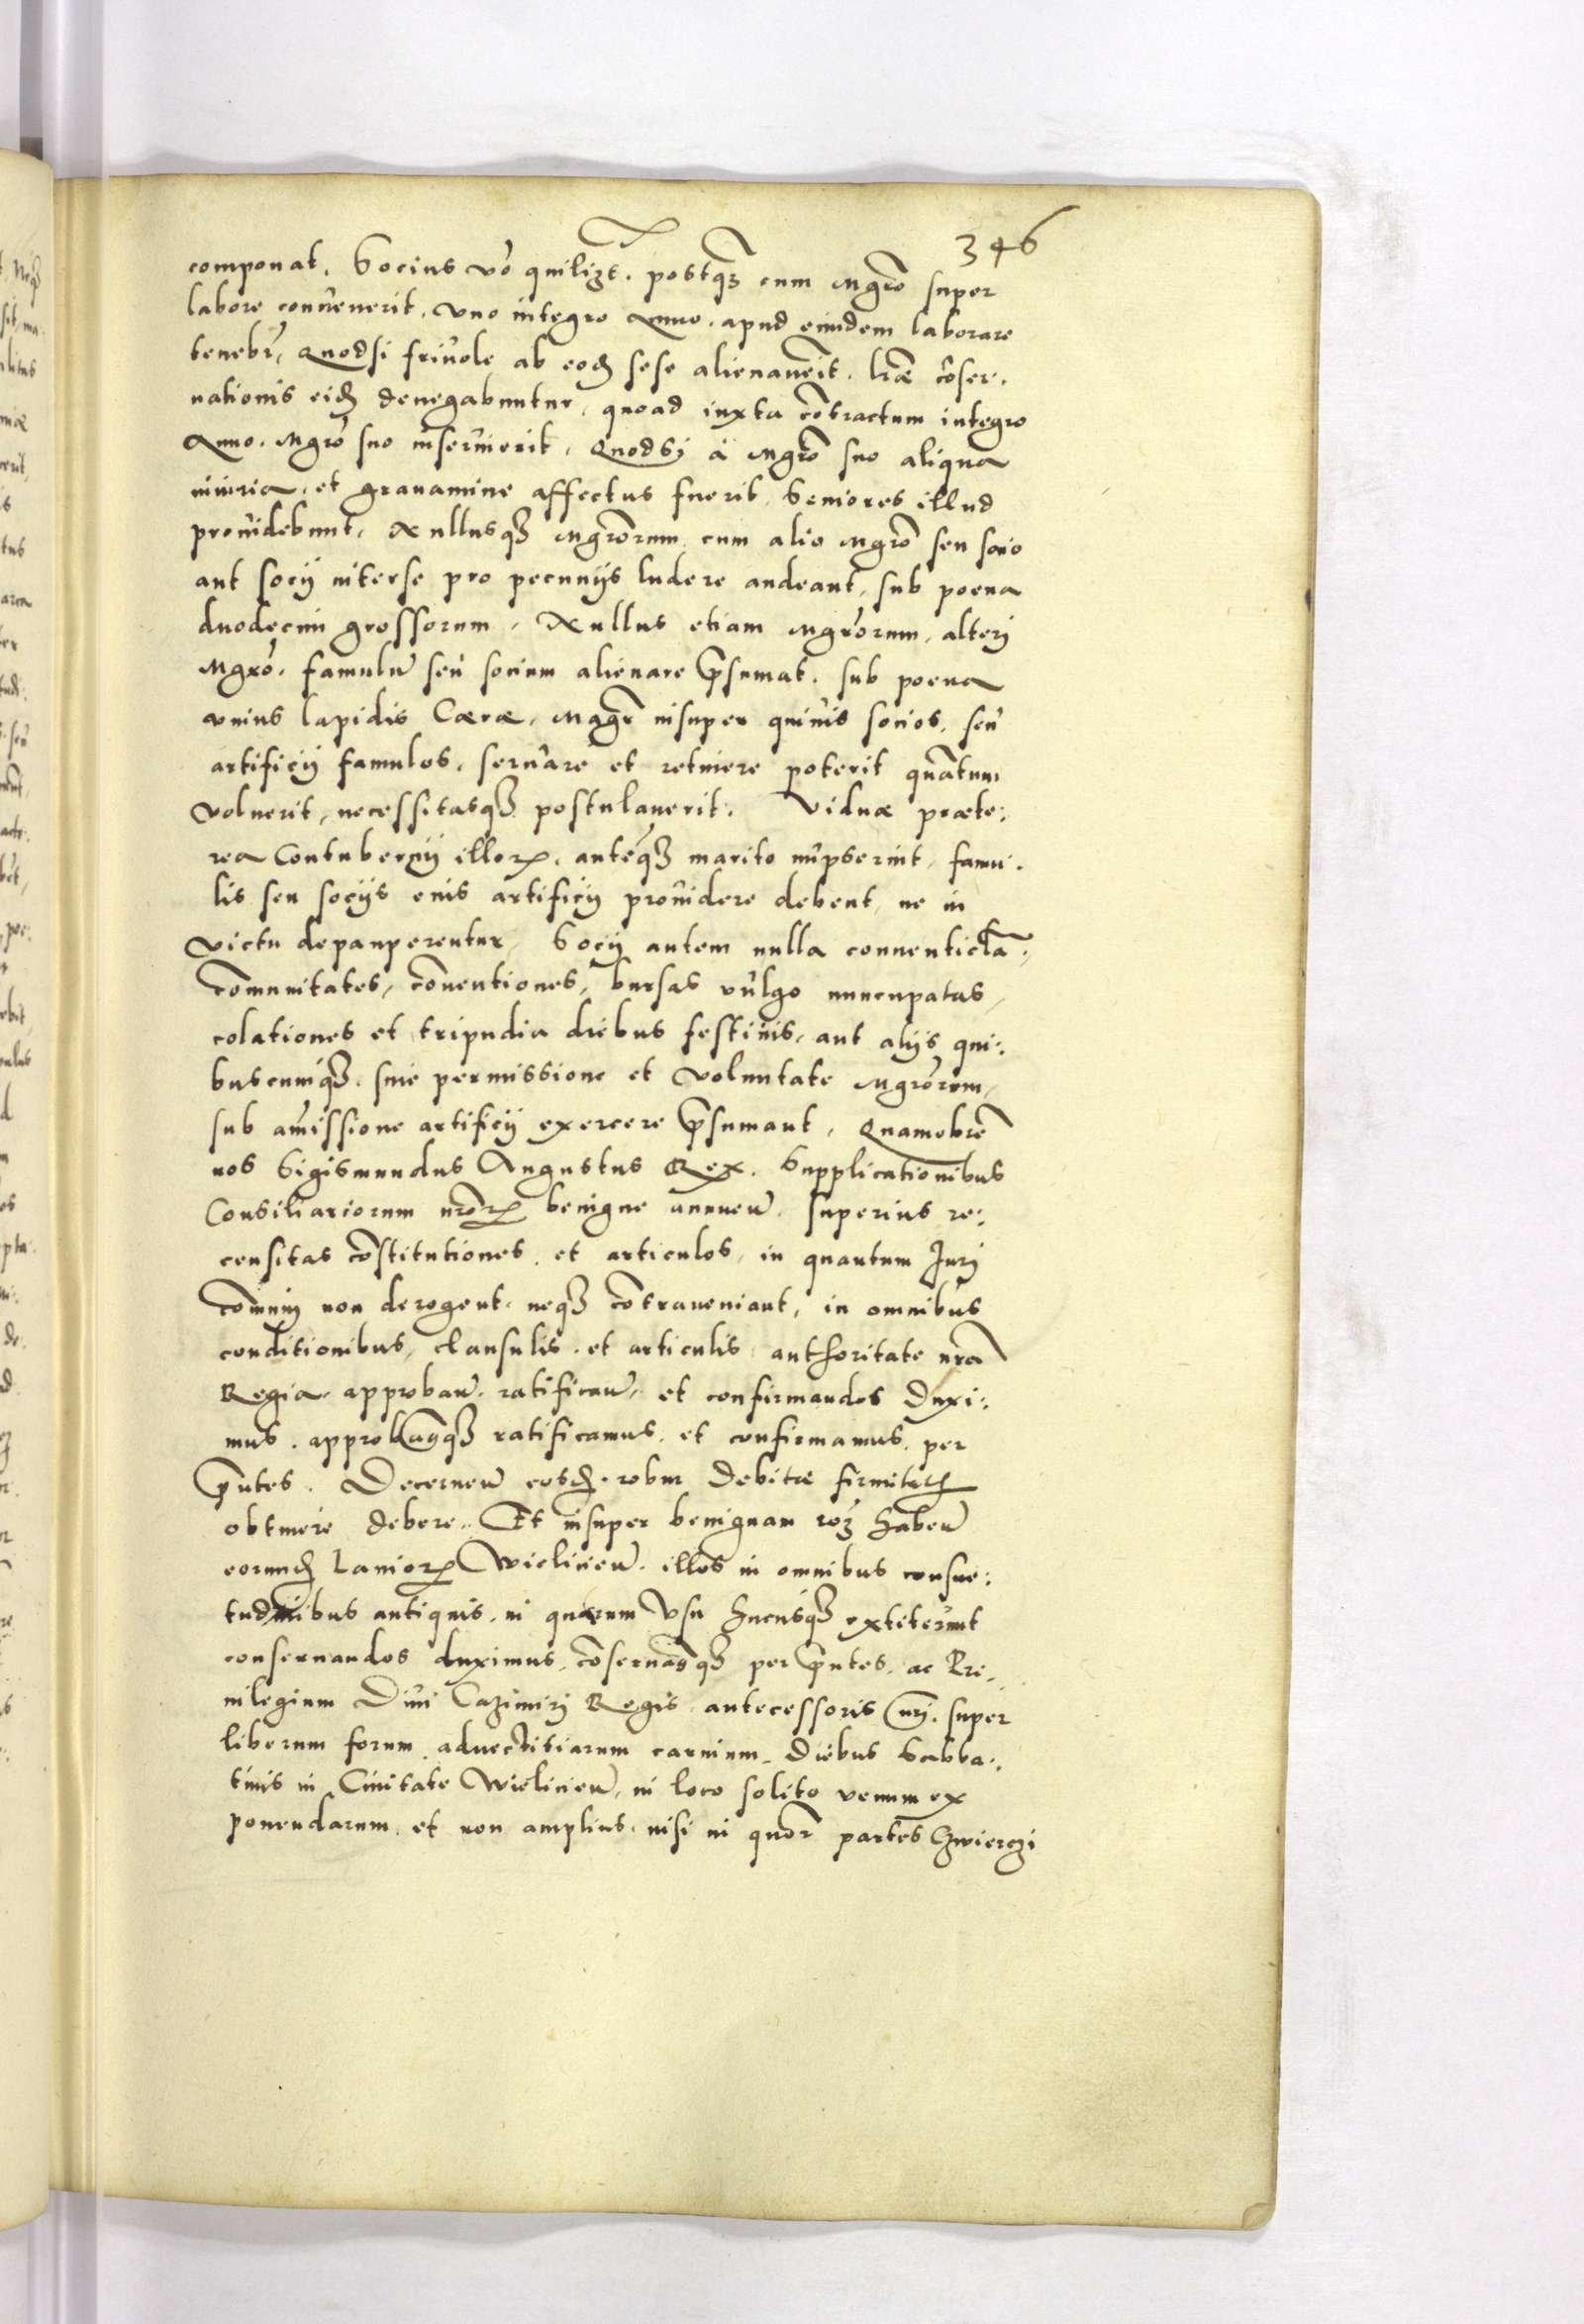 346
componat. Socius vo quilizt. postqz cum Mgro super
labore convenerit, vno integro Anno, apud eundem laborare
tenebr, Quodsi frivole ab eod sese alienaverit. lræ coser,
vationis eid denegabuntur, quoad iuxta cōtractum integro
Anno, Mgro suo inservierit, Quodsi à Mgro suo aliqua
iniuria, et gravamine affectus fuerit, Seniores illud
providebunt, Nullusqz Mgrorum cum alio Mgro seu socio
aut socij interse pro pecunijs ludere audeant, sub poena
duodecim grossorum, Nullus etiam Mgrorum, alteri
Mgro, famulū seu socium alienare p̄sumat, sub poena
vnius lapidis Cæræ, Magr insuper quivis socios, seu
artificij famulos, servare et retinere poterit quātum
voluerit, necessitasqz postulaverit. Viduæ præte:
rea Contubernij illorꝝ, anteqz marito nupserint, famu,
lis seu socijs eius artificij providere debent, ne in
victu depauperentur, Socij autem nulla conventicla,
Cōmunitates, cōventiones, bursas vulgo nuncupatas,
colationes et tripudia diebus festivis, aut alijs qui:
buscunqz, sine permissione et voluntate Mgrorum,
sub amissione artificij exercere p̄sumant, Quamobrē
nos Sigismundus Augustus Rex. Supplicationibus
Consiliariorum nrorꝝ benigne annueū, superius re:
censitas cōstitutiones, et articulos, in quantum Juri
cōmuni non derogent, neqz cōtraveniant, in omnibus
conditionibus, clausulis, et articulis authoritate nra
Regia approbaū, ratificaū, et confirmandos Duxi:
mus, approbamqz ratificamus, et confirmamus, per
p̄ntes. Decerneū eosd, robur debitæ firmitatis
obtinere debere. Et insuper benignam roz habeū
eorund Laniorꝝ Wielicieū, illos in omnibus consue:
tudinibus antiquis, in quarum Vsu hucusqz extiterunt
conservandos duximus, cōservamqz per p̄ntes, ac Pre,
vilegium Divi Cazimiri Regis antecessoris nri, super
liberum forum advectitiarum carnium, Diebus Sabba,
tinis in Civitate Wielicieū, in loco solito venum ex
ponendarum, et non amplius, nisi in quor partes Czwierczi